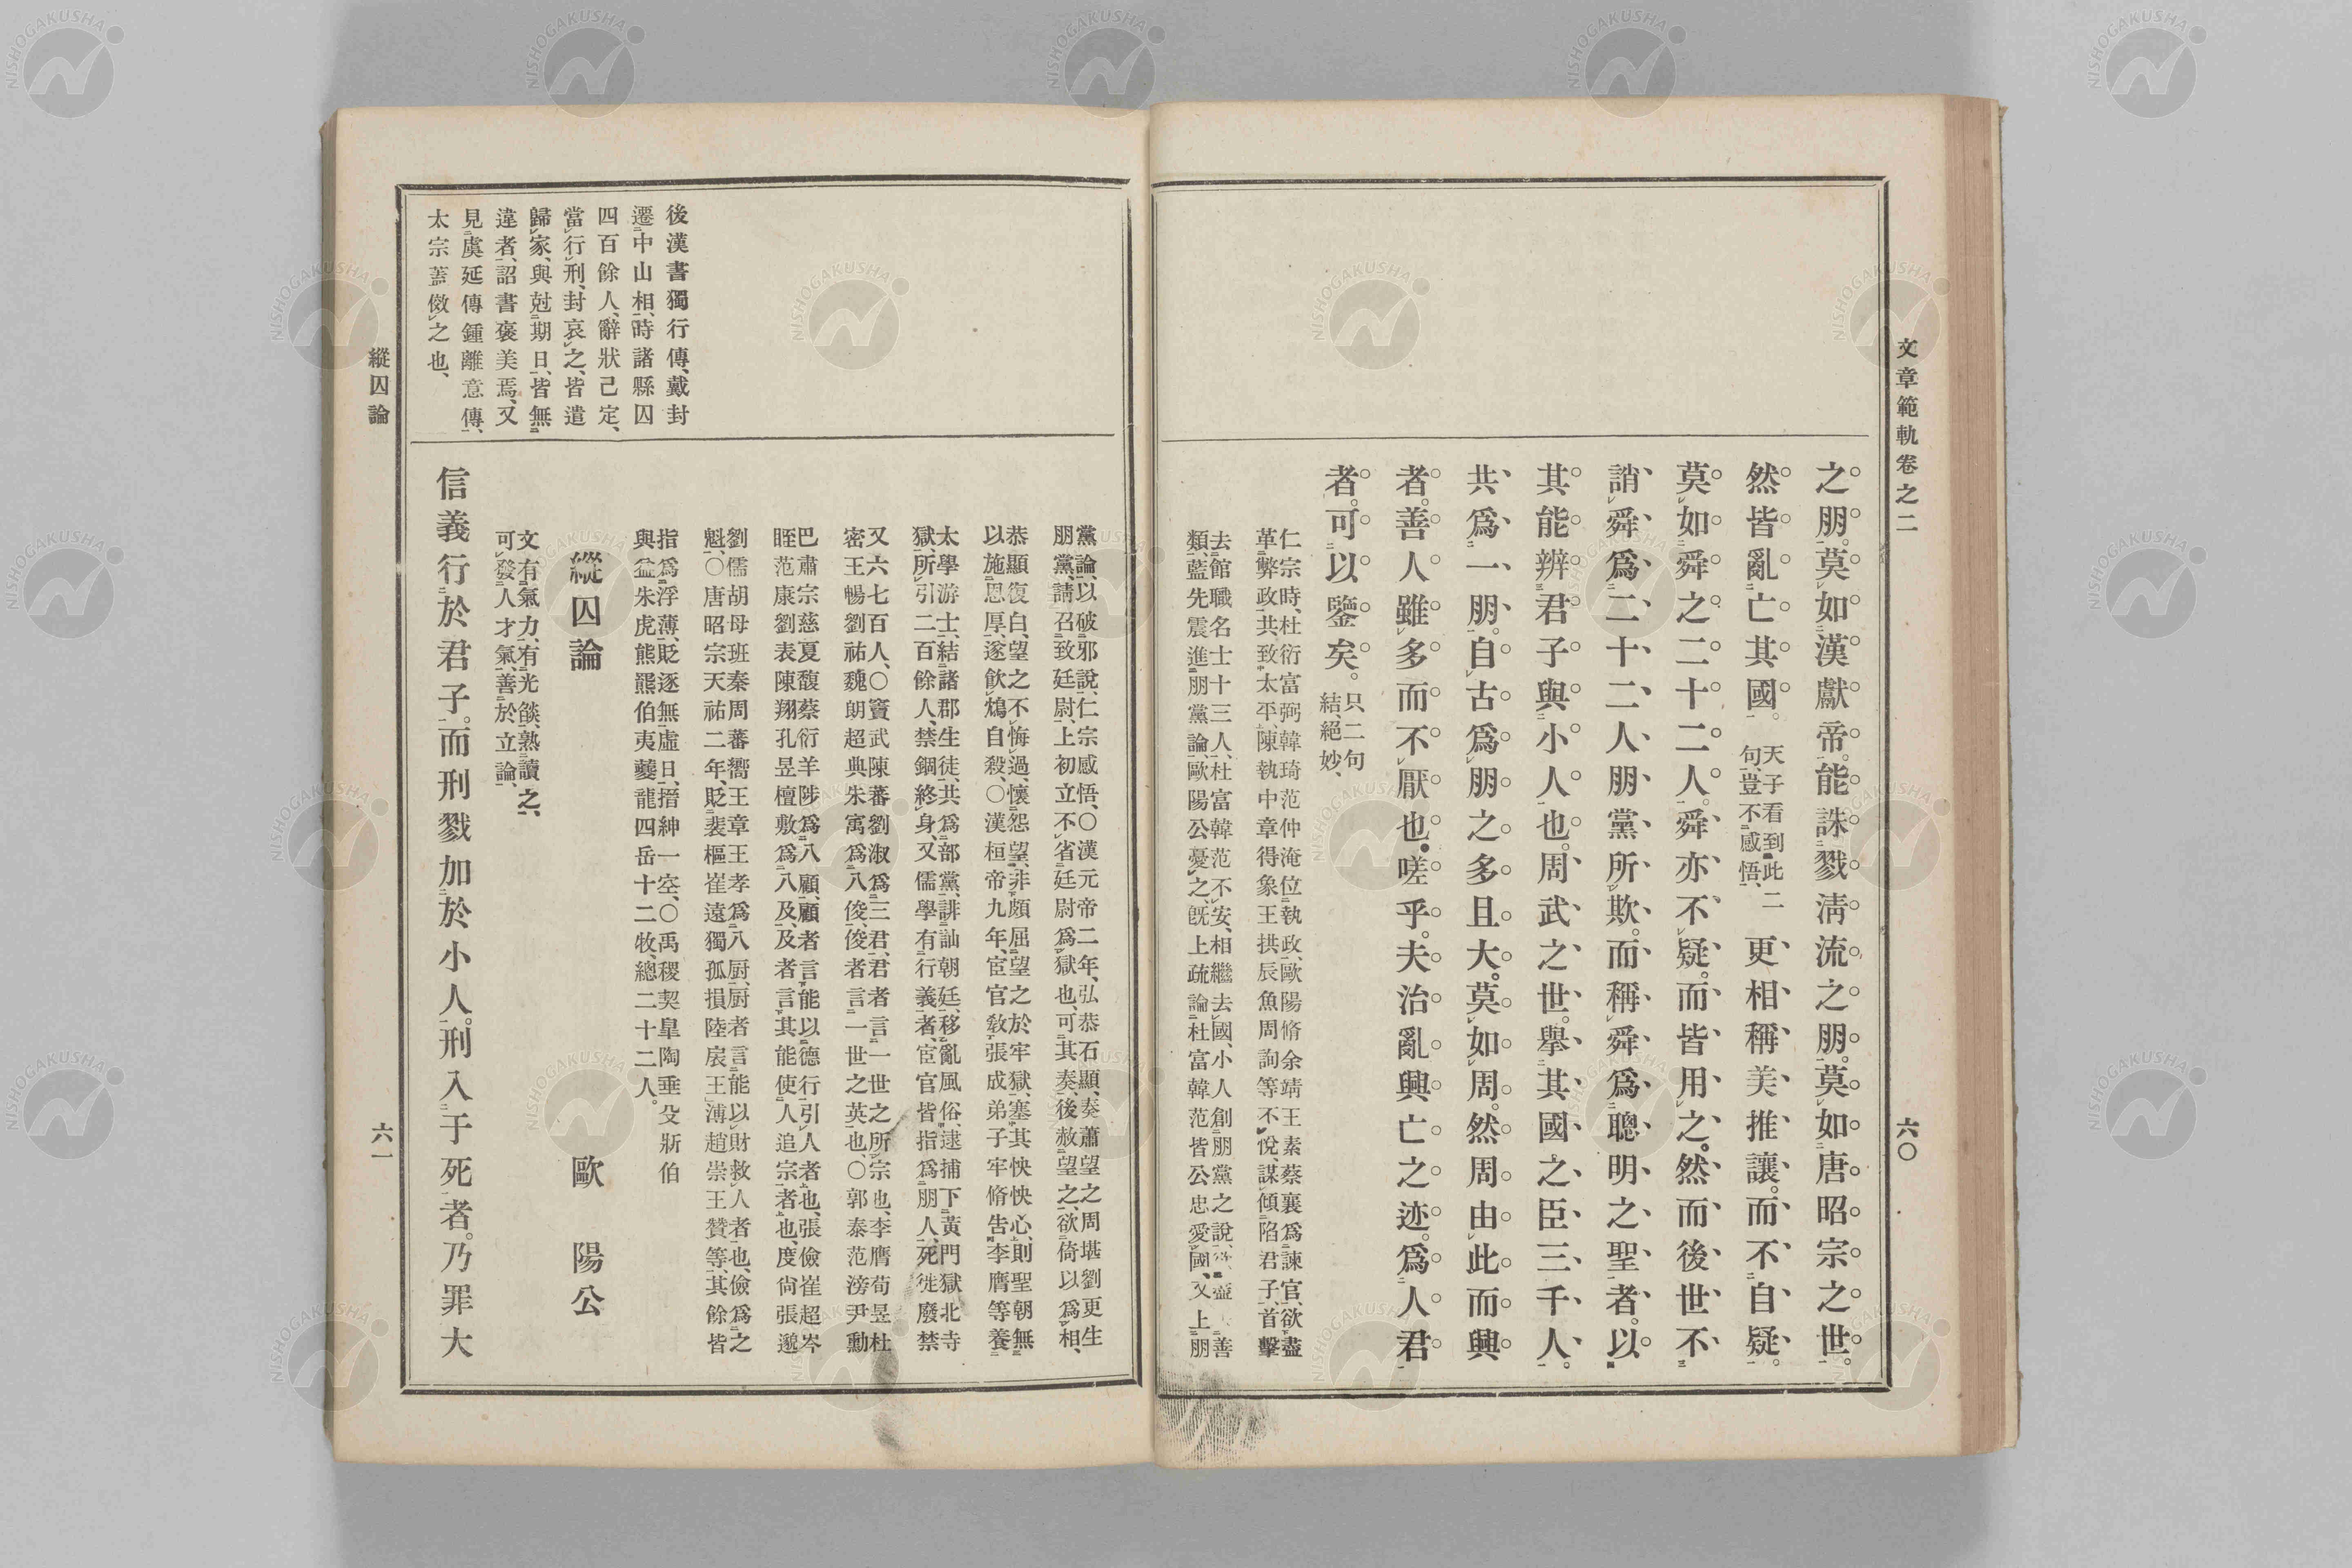 文章範軌卷之二
六〇
之朋。莫如漢獻帝。能誅戮淸流之朋。莫如唐昭宗之世。
然皆亂亡其國。天子看到此二
句、豈不感悟、
更相稱美推讓。而不自疑。
莫如舜之二十二人。舜亦不疑。而皆用之。然而後世不
誚舜爲二十二人朋黨所欺。而稱舜爲聰明之聖者。以
其能辨君子與小人也。周武之世。擧其國之臣三千人。
共爲一朋。自古爲朋之多且大。莫如周。然周由此而興
者。善人雖多而不厭也。嗟乎。夫治亂興亡之迹。爲人君
者。可以鑒矣。只二句
結、絕妙、
仁宗時、杜衍富弼韓琦范仲淹位執政、歐陽脩余靖王素蔡襄爲諫官、欲盡
革弊政、共致太平、陳執中章得象王拱辰魚周詢等不悅、謀傾陷君子、首擊
去館職名士十三人、杜富韓范不安、相繼去國、小人創朋黨之說、善
類、藍先震進朋黨論、歐陽公憂之、旣上疏論杜富韓范皆公忠愛國、又上朋
黨論、以破邪說、仁宗感悟、〇漢元帝二年、弘恭石顯、奏蕭望之周堪劉更生
朋黨、請召致廷尉、上初立不省廷尉爲獄也、可其奏、後赦望之、欲倚以爲相、
恭顯復白、望之不悔過、懷怨望、非頗屈望之於牢獄、塞其怏怏心、則聖朝無
以施恩厚、遂飮鴆自殺、〇漢桓帝九年、宦官敎張成弟子牢脩告李膺等養
太學游士、結諸郡生徒、共爲部黨、誹訕朝廷、移亂風俗、逮捕下黃門獄北寺
獄、所引二百餘人、禁錮終身、又儒學有行義者、宦官皆指爲朋人、死徙廢禁
又六七百人、〇竇武陳蕃劉淑爲三君、君者言一世之所宗也、李膺荀昱杜
密王暢劉祐魏朗超典朱寓爲八俊、俊者言一世之英也、〇郭泰范滂尹勳
巴肅宗慈夏馥蔡衍羊陟爲八顧、顧者言能以德行引人者也、張儉崔超岑
晊范康劉表陳翔孔昱檀敷爲八及、及者言其能使人追宗者也、度尙張邈
劉儒胡母班秦周蕃嚮王章王孝爲八厨、厨者言能以財救人者也、儉爲之
魁、〇唐昭宗天祐二年、貶裴樞崔遠獨孤損陸扆王溥趙崇王贊等、其餘皆
指爲浮薄、貶逐無虛日、搢紳一空、〇禹稷契皐陶垂殳斨伯
與益朱虎熊羆伯夷夔龍四岳十二牧、總二十二人。
縱囚論 歐陽公
文有氣力、有光燄、熟讀之、
可發人才氣、善於立論、
信義行於君子。而刑戮加於小人。刑入于死者。乃罪大
後漢書獨行傳、戴封
遷中山相、時諸縣囚
四百餘人、辭狀已定、
當行刑、封哀之、皆遣
歸家、與尅期日、皆無
違者、詔書褒美焉、又
見虞延傳鍾離意傳、
太宗蓋倣之也、
縱囚論
六一